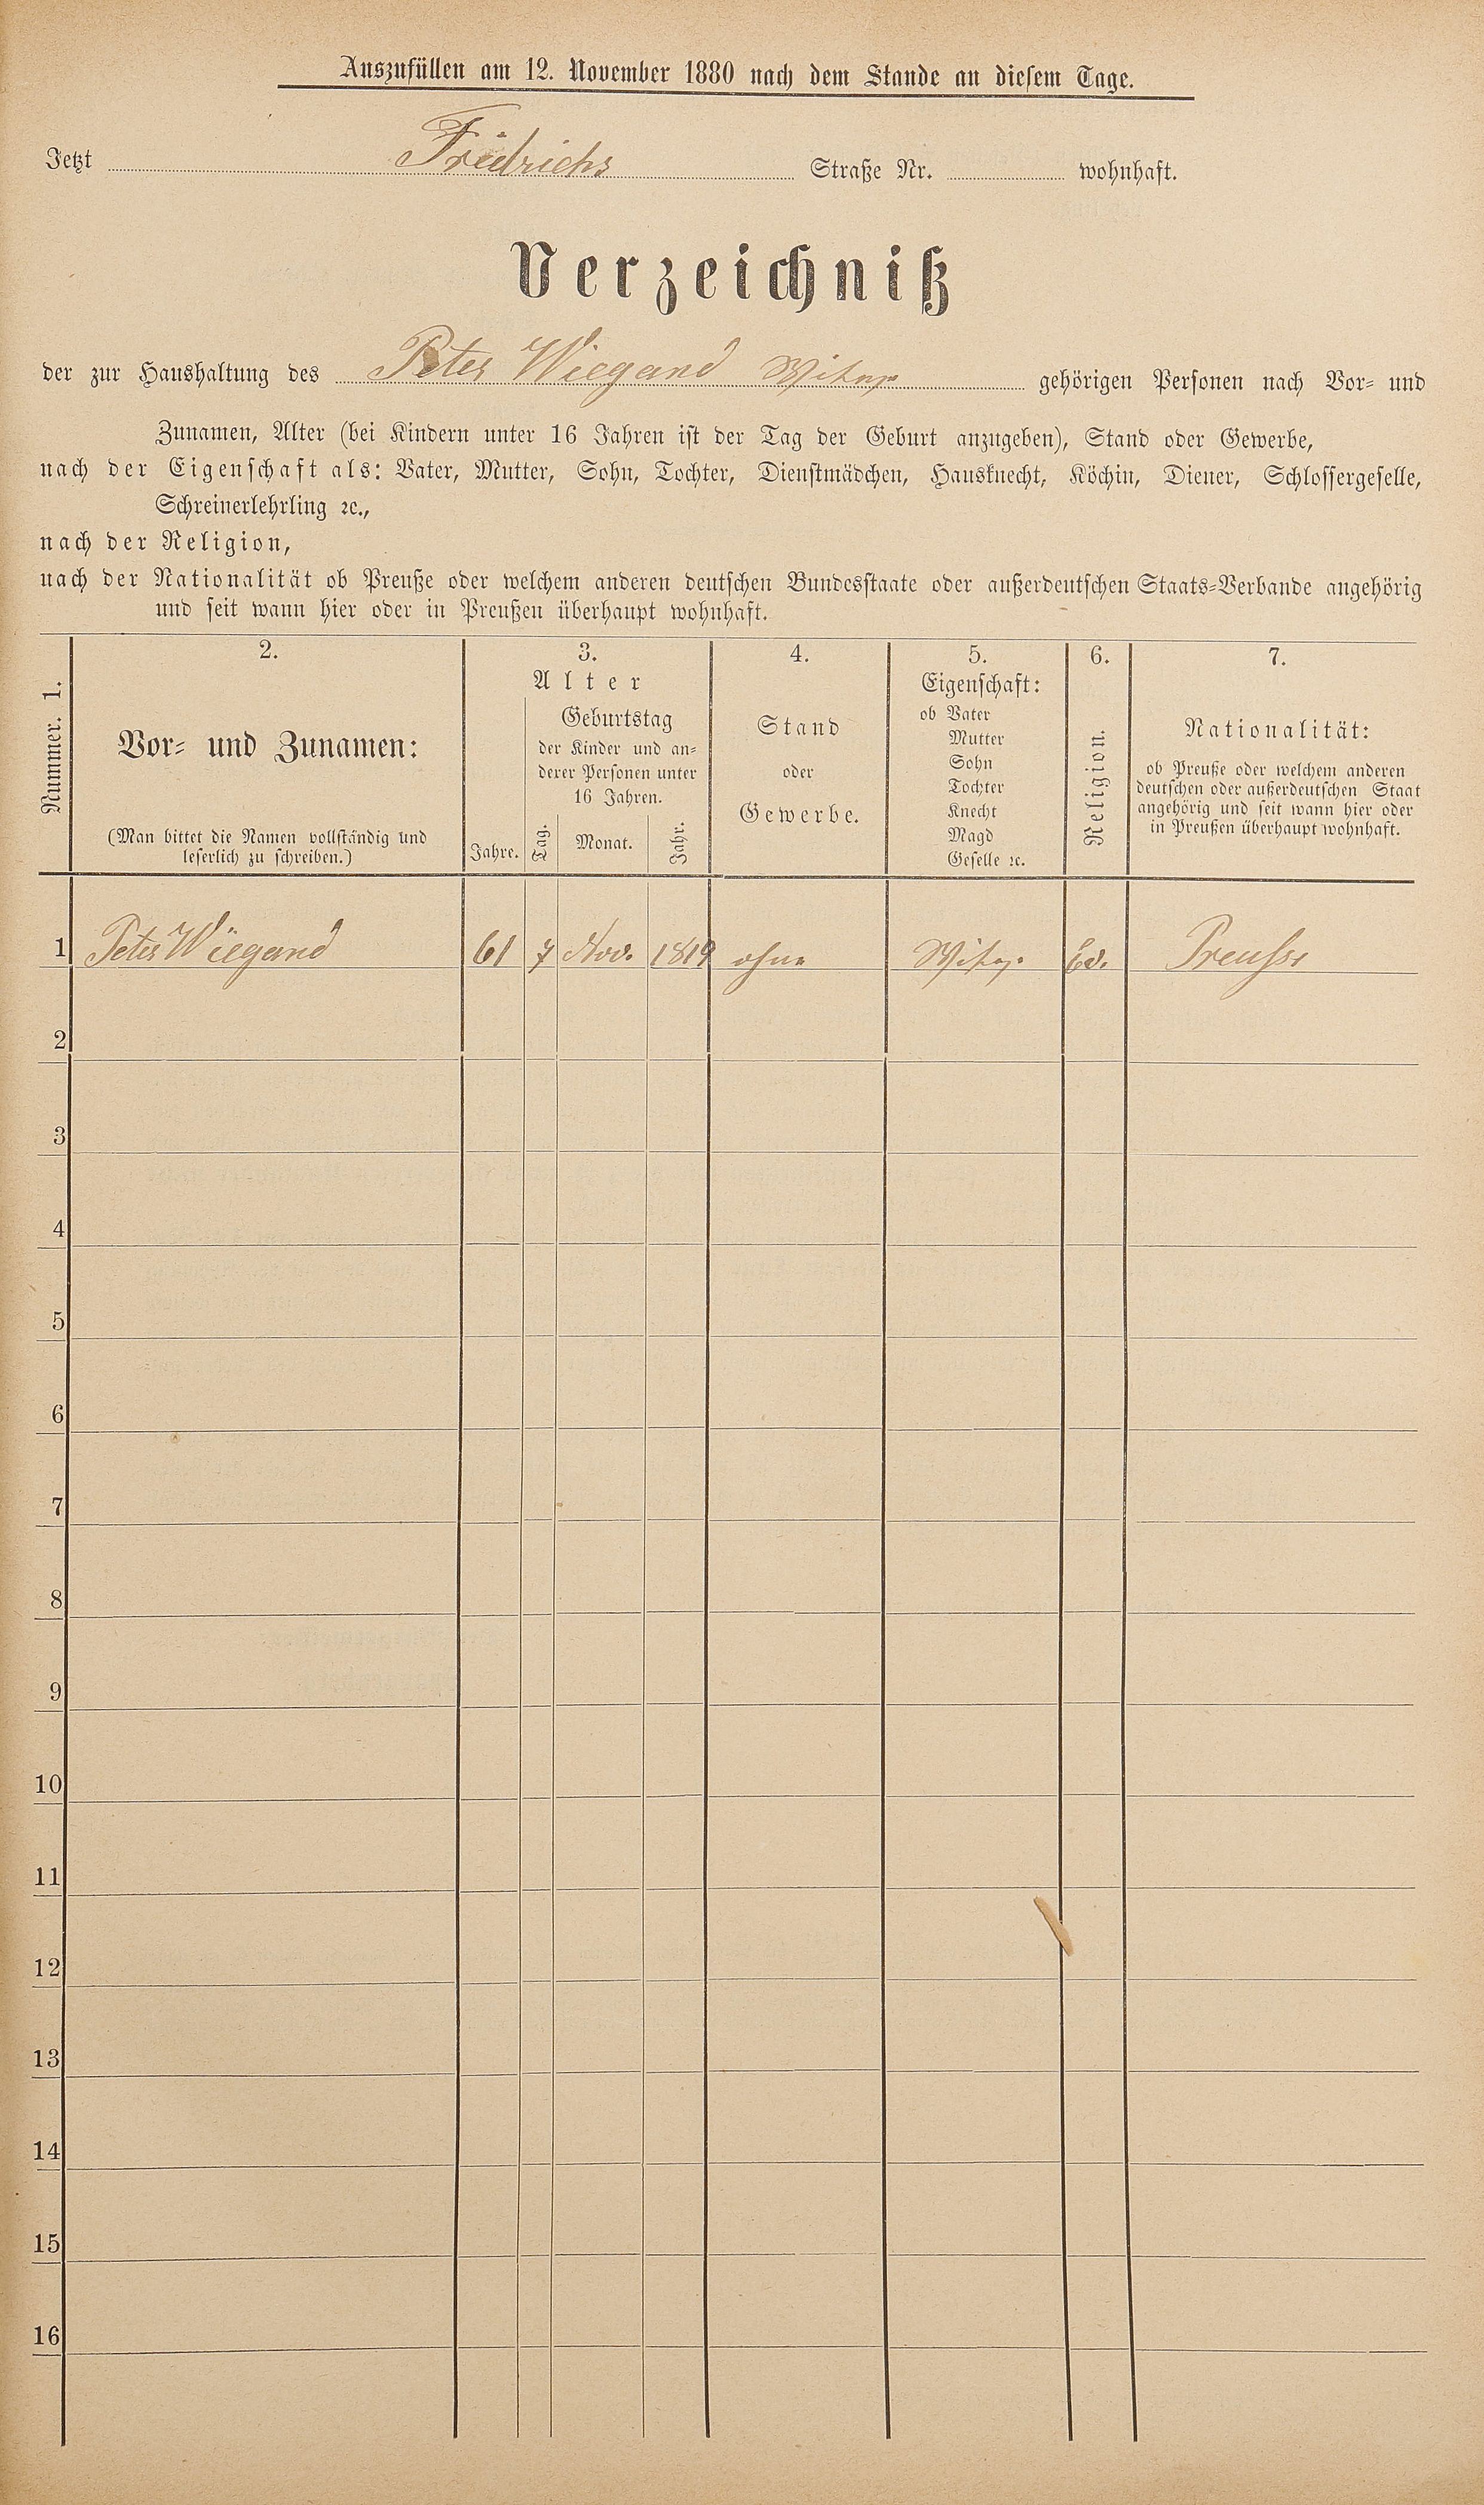 Auszufüllen am 12. November 1880 nach dem Stande an diesem Tage.
Jetzt Friedrichs Straße Nr. wohnhaft.
Verzeichniß
der zur Haushaltung des Peter Wiegand gehörigen Personen nach Vor- und
Zunamen, Alter (bei Kindern unter 16 Jahren ist der Tag der Geburt anzugeben), Stand oder Gewerbe,
nach der Eigenschaft als: Vater, Mutter, Sohn, Tochter, Dienstmädchen, Hausknecht, Köchin, Diener, Schlossergeselle,
Schreinerlehrling ꝛc.,
nach der Religion,
nach der Nationalität ob Preuße oder welchem anderen deutschen Bundesstaate oder außerdeutschen Staats-Verbande angehörig
und seit wann hier oder in Preußen überhaupt wohnhaft.
Nummer. 1.
2.
Vor- und Zunamen:
(Man bittet die Namen vollständig und
leserlich zu schreiben.)
3.
Alter
Jahre.
Geburtstag
der Kinder und an-
derer Personen unter
16 Jahren.
Tag. Monat. Jahr.
4.
Stand
oder
Gewerbe.
5.
Eigenschaft:
ob Vater
Mutter
Sohn
Tochter
Knecht
Magd
Geselle ꝛc.
6.
Religion.
7.
Nationalität:
ob Preuße oder welchem anderen
deutschen oder außerdeutschen Staat
angehörig und seit wann hier oder
in Preußen überhaupt wohnhaft.
1 Peter Wiegand 61 7 Nov. 1819 ohne Ev. Preuße
2
3
4
5
6
7
8
9
10
11
12
13
14
15
16